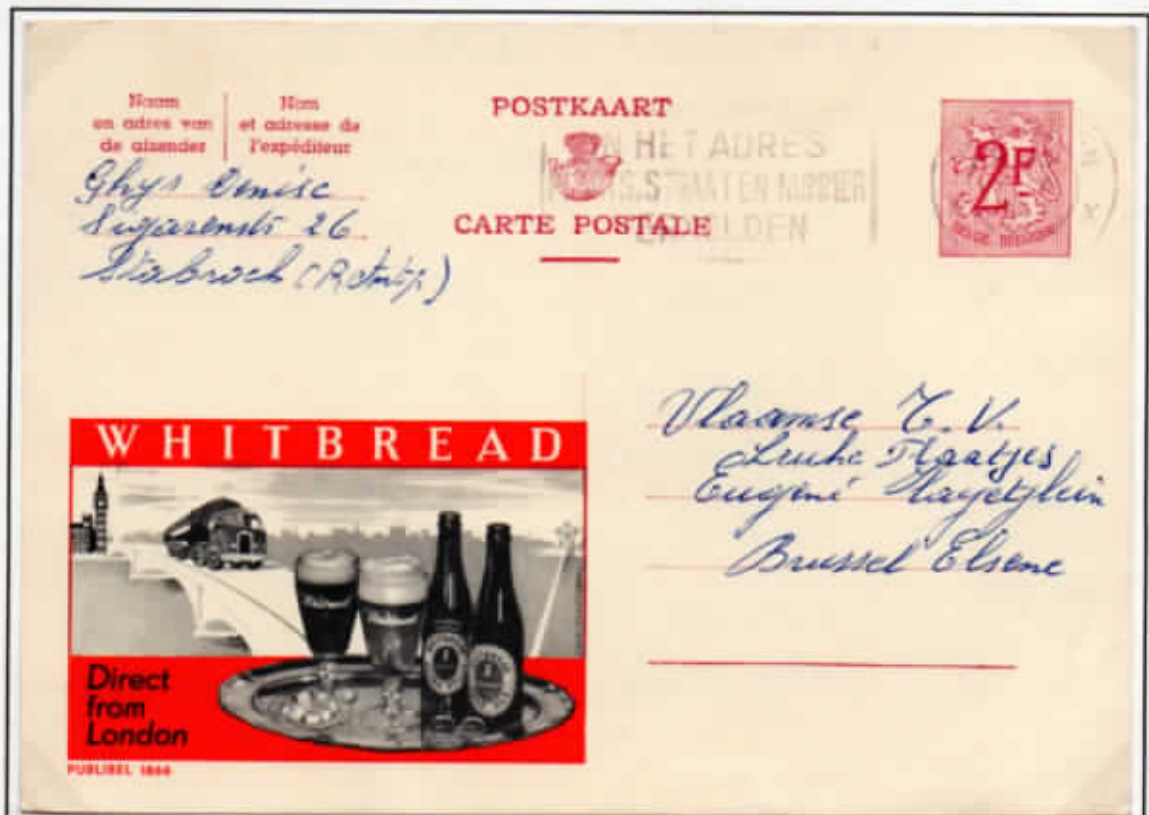 Naam
en adres van
de afzender
Nom
et adresse de
l'expéditeur
POSTKAART
CARTE POSTALE
N HET ADRES
STRAAT EN NUMMER
2F
BELGIE BELGIQUE
Ghys Denise
26
Stabroek (
Vlaamse T.V.
Leuke Plaatjes
Eugène
Brussel Elsene
WHITBREAD
Direct
from
London
PUBLIBEL 1866